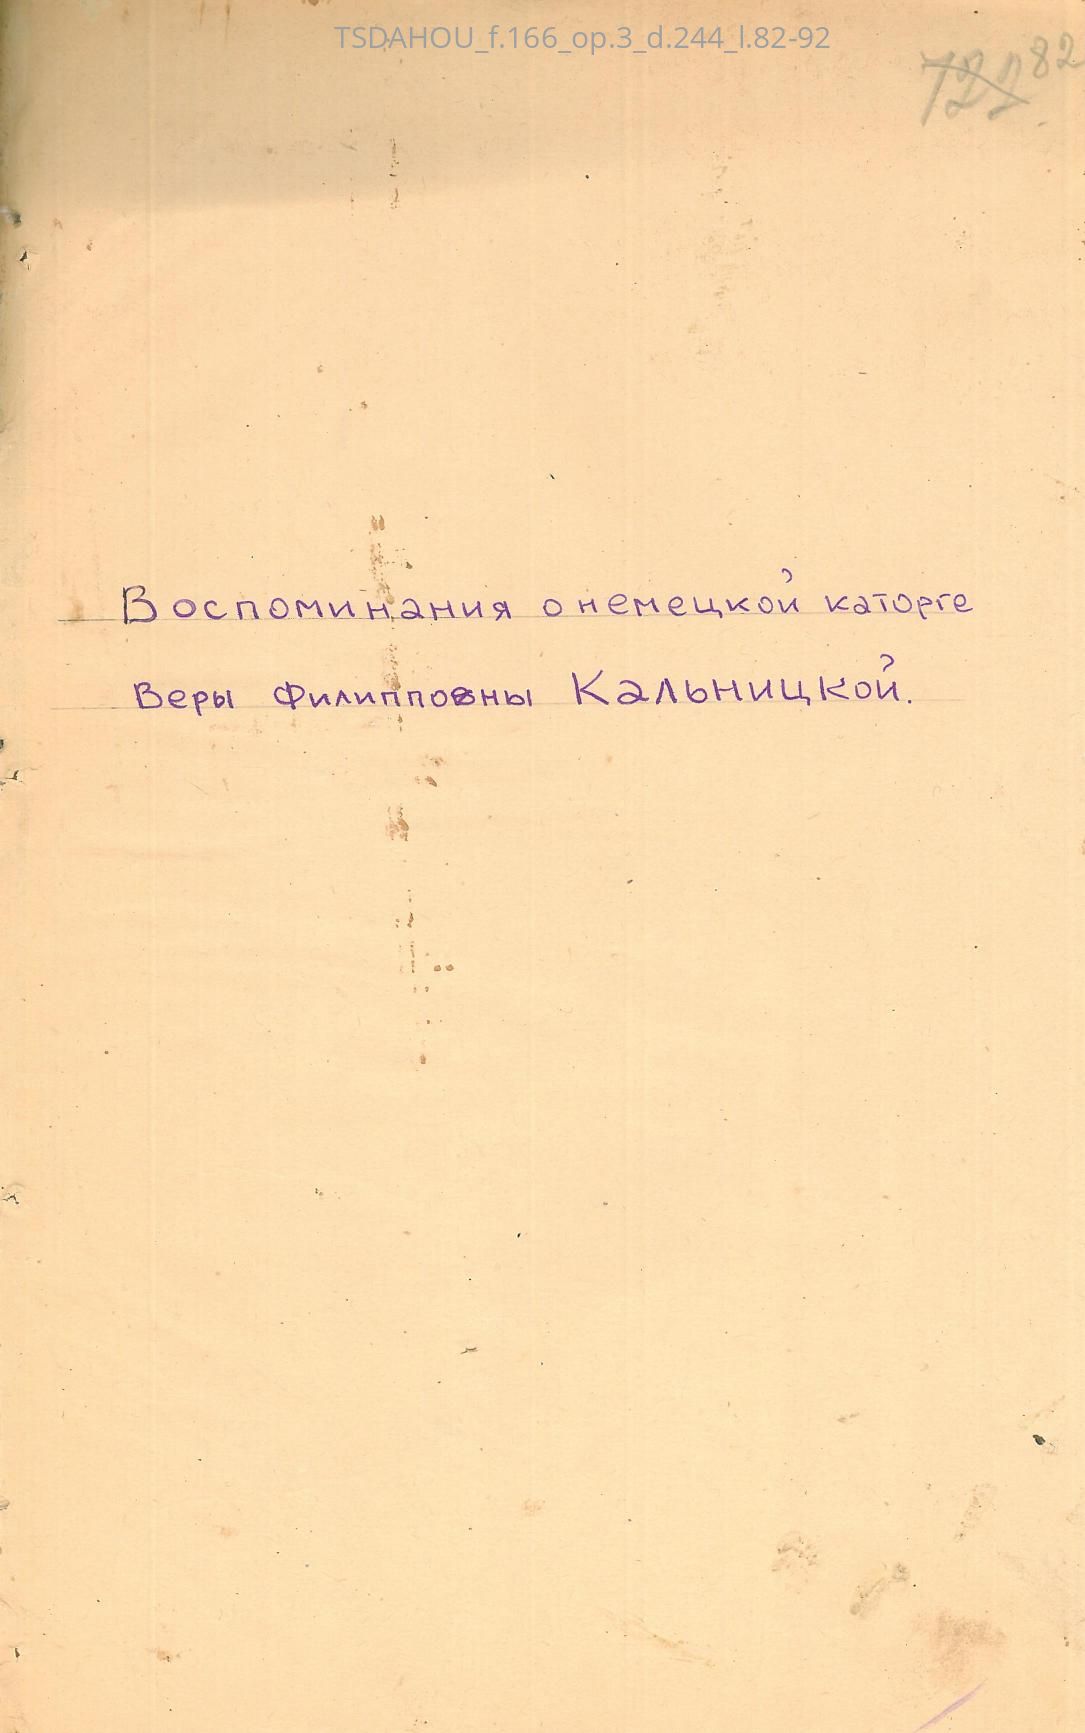 TSDAHOU_f.166_op.3_d.244_l.82-92
722 82
Воспоминания о немецкой каторге
Веры Филипповны Кальницкой.